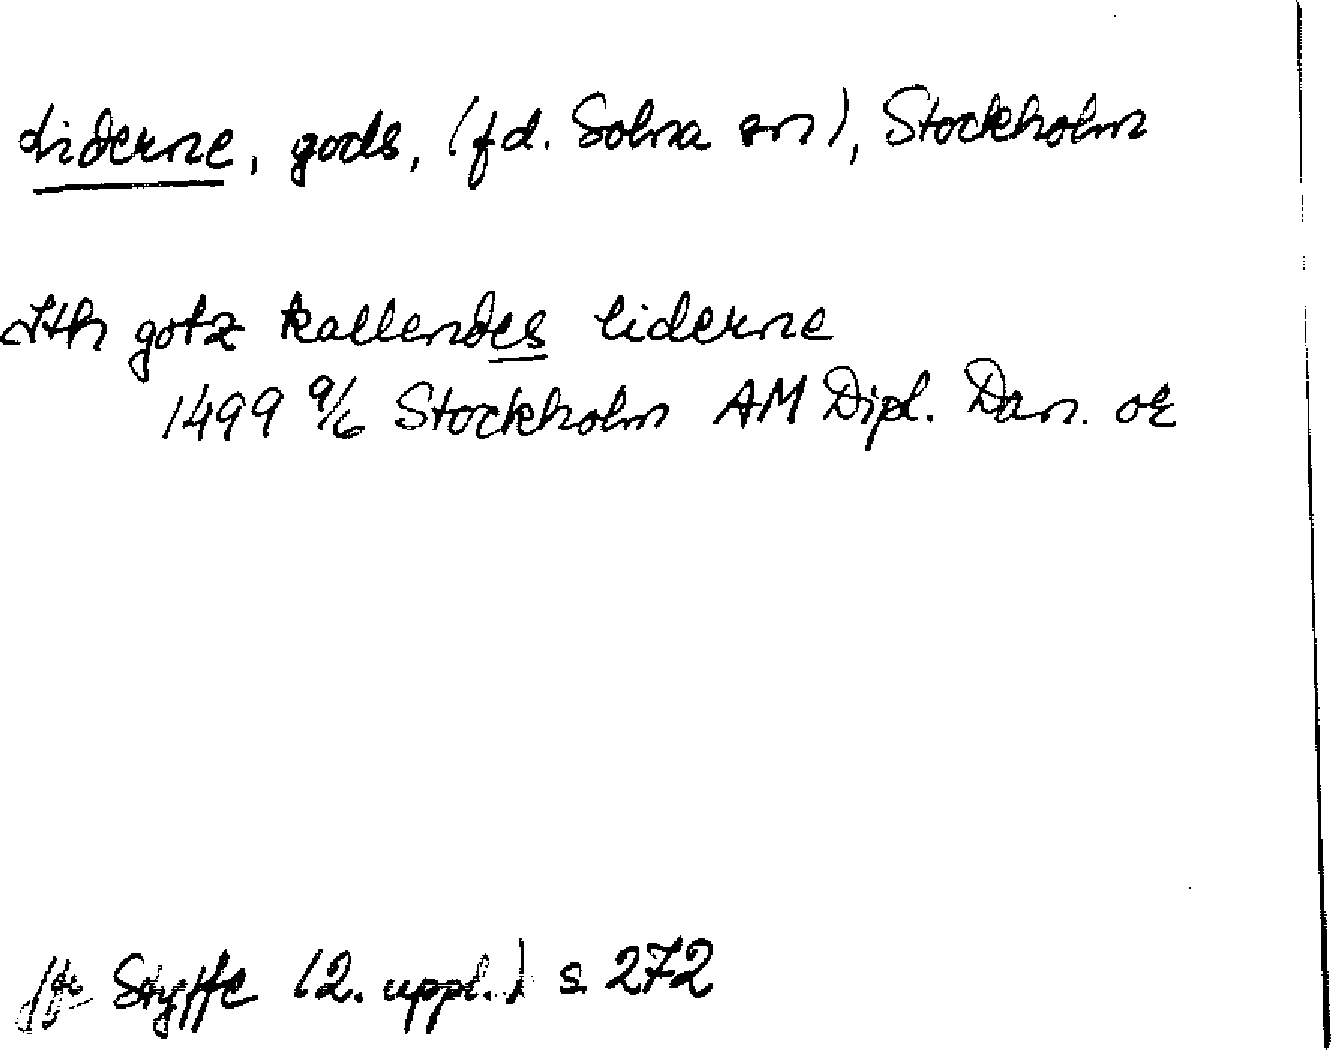 Liderne, gods, (fd. Solna sn), Stockholm
Jth gotz kallendes liderne
1499 9/6 Stockholm AM Dipl. Dan. or
Jfr Styffe (2. uppl.) s 272